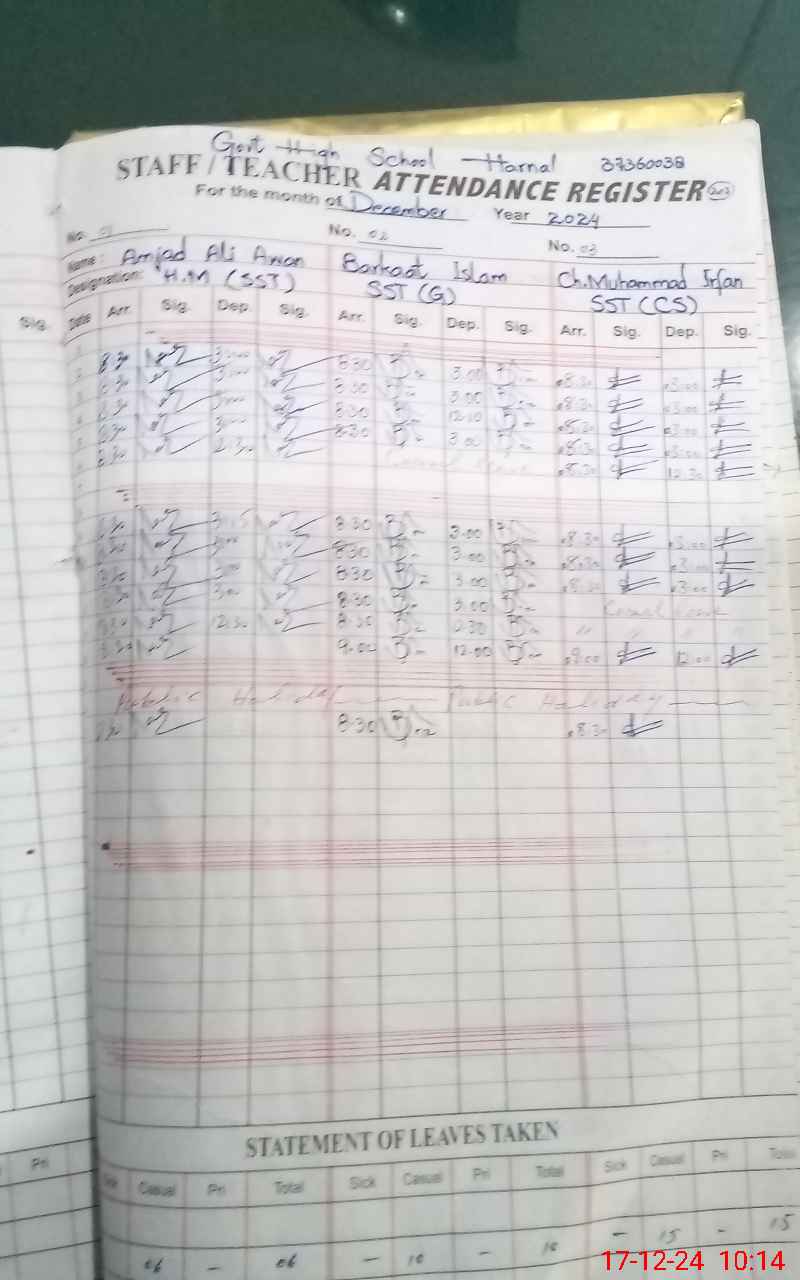 Govt High School Harnal 37360038
STAFF / TEACHER ATTENDANCE REGISTER
For the month of December Year 2024
No. 01 No. 02 No. 03
Name: Amjad Ali Awan Barkaat Islam Ch. Muhammad Irfan
Designation: H.M (SST) SST (G) SST (CS)
Sig. Date Arr. Sig. Dep. Sig. Arr. Sig. Dep. Sig. Arr. Sig. Dep. Sig.
8.30 3.00 8.30 3.00 8.30 3.00
8.30 3.00 8.30 3.00 8.30 3.00
8.30 3.00 8.30 12.10 8.30 3.00
8.30 3.00 8.30 3.00 8.30 3.00
8.30 12.30 Casual Leave 8.30 12.30
8.30 3.15 8.30 3.00 8.30 3.00
8.30 3.00 8.30 3.00 8.30 3.00
8.30 3.00 8.30 3.00 8.30 3.00
8.30 3.00 8.30 3.00 Casual Leave
8.30 12.30 8.30 " " " "
9.00 12.00 9.00 12.00
Public Holiday Public Holiday
8.30 8.30 8.30
STATEMENT OF LEAVES TAKEN
Pri Sick Casual Pri Total Sick Casual Pri Total Sick Casual Pri Total
06 - 06 - 10 - 10 - 15 - 15
17-12-24 10:14